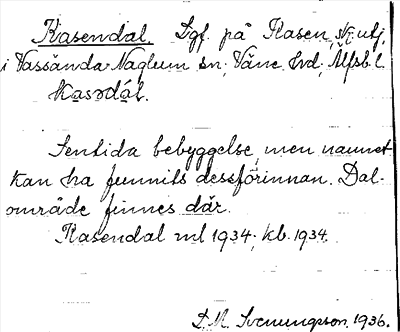 Rasendal. Lgf. på Rasen, skjutf,
i Vassända-Naglum sn, Väne hd, Älfsb. l.
Sentida bebyggelse, men namnet
kan ha funnits dessförinnan. Dal-
område finnes där.
Rasendal ml 1934, kb. 1934.
Svenungsson, 1936.